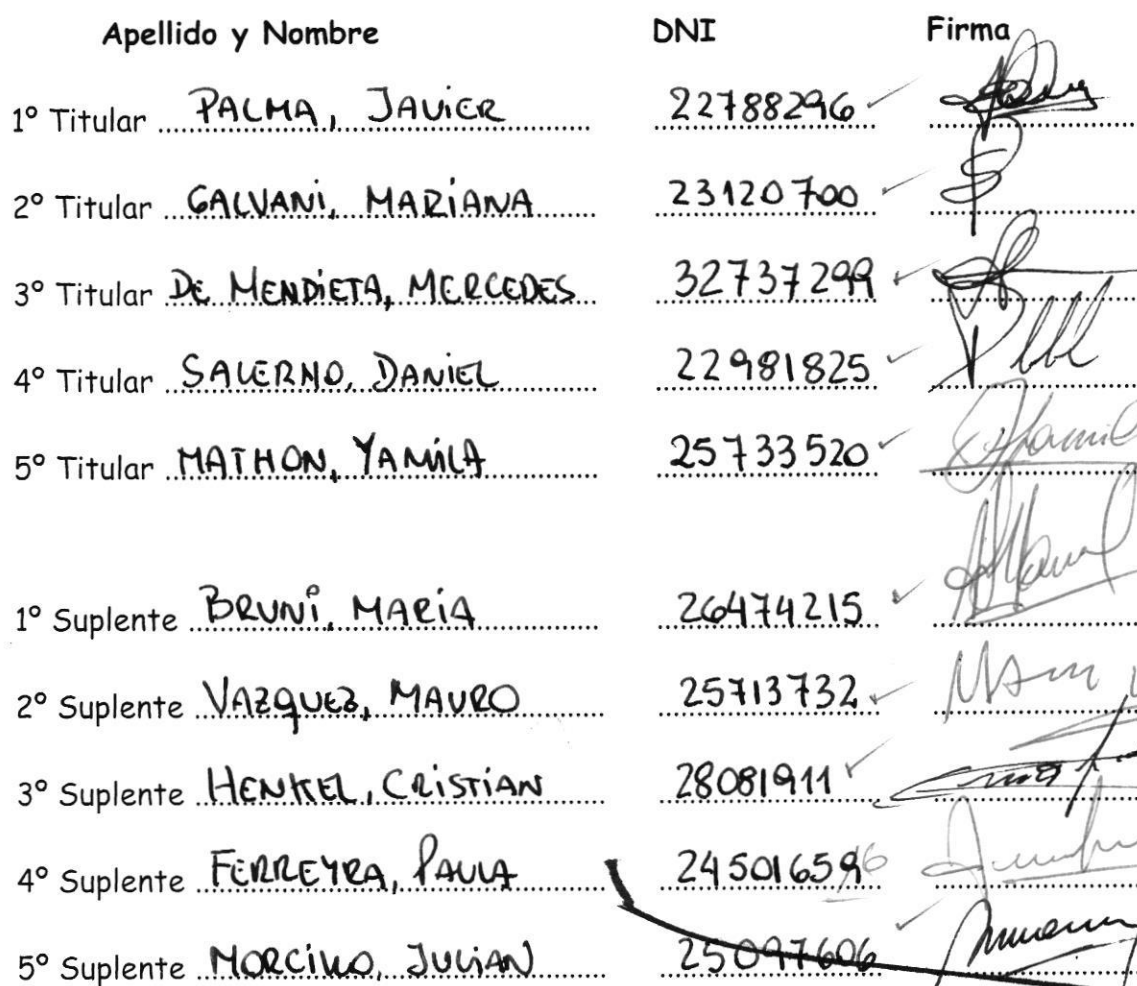 Apellido y Nombre DNI Firma
1º Titular PALMA, JAVIER 22788296
2º Titular GALVANI, MARIANA 23120700
3º Titular DE MENDIETA, MERCEDES 32737299
4º Titular SALERNO, DANIEL 22981825
5º Titular MATHON, YAMILA 25733520
1º Suplente BRUNI, MARIA 26474215
2º Suplente VAZQUEZ, MAURO 25713732
3º Suplente HENKEL, CRISTIAN 28081911
4º Suplente FERREYRA, PAULA 24501659
5º Suplente MORCILLO, JULIAN 25097606